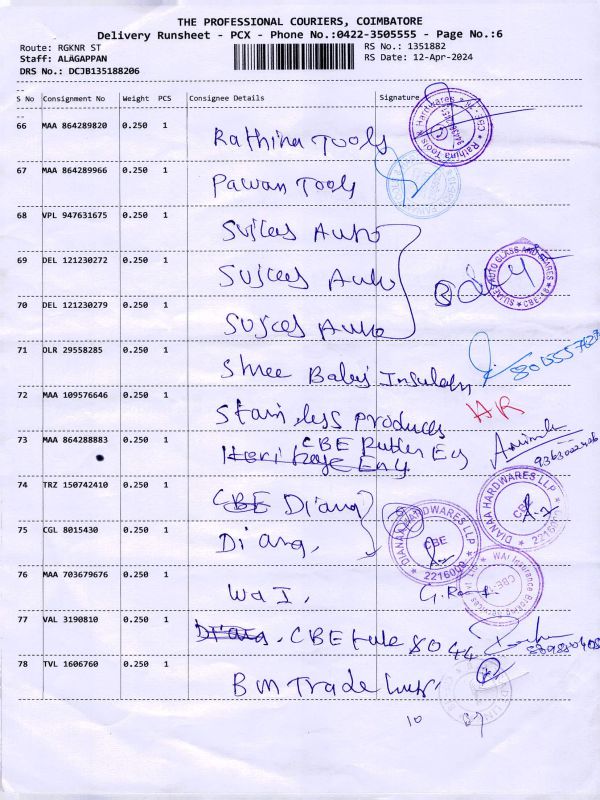 THE PROFESSIONAL COURIERS, COIMBATORE
Delivery Runsheet - PCX - Phone No.:0422-3505555 - Page No.:6
Route: RGKNR ST RS No.: 1351882
Staff: ALAGAPPAN RS Date: 12-Apr-2024
DRS No.: DCJB135188206
S No Consignment No Weight PCS Consignee Details Signature
66 MAA 864289820 0.250 1 Rathina Tools
67 MAA 864289966 0.250 1 Pawan Tools
68 VPL 947631675 0.250 1 Sujces Auto
69 DEL 121230272 0.250 1 Sujces Auto
70 DEL 121230279 0.250 1 Sujces Auto
71 DLR 29558285 0.250 1 Shree Balaji
72 MAA 109576646 0.250 1 Stainless produces AR
73 MAA 864288883 0.250 1 CBE
74 TRZ 150742410 0.250 1 CBE Diana
DIANAA HARDWARES LLP CBE
75 CGL 8015430 0.250 1 Diana,
DIANAA HARDWARES LLP CBE 2216009
76 MAA 703679676 0.250 1 WaI,
77 VAL 3190810 0.250 1 Diana, CBE tule 8044
78 TVL 1606760 0.250 1 BM Trade
10